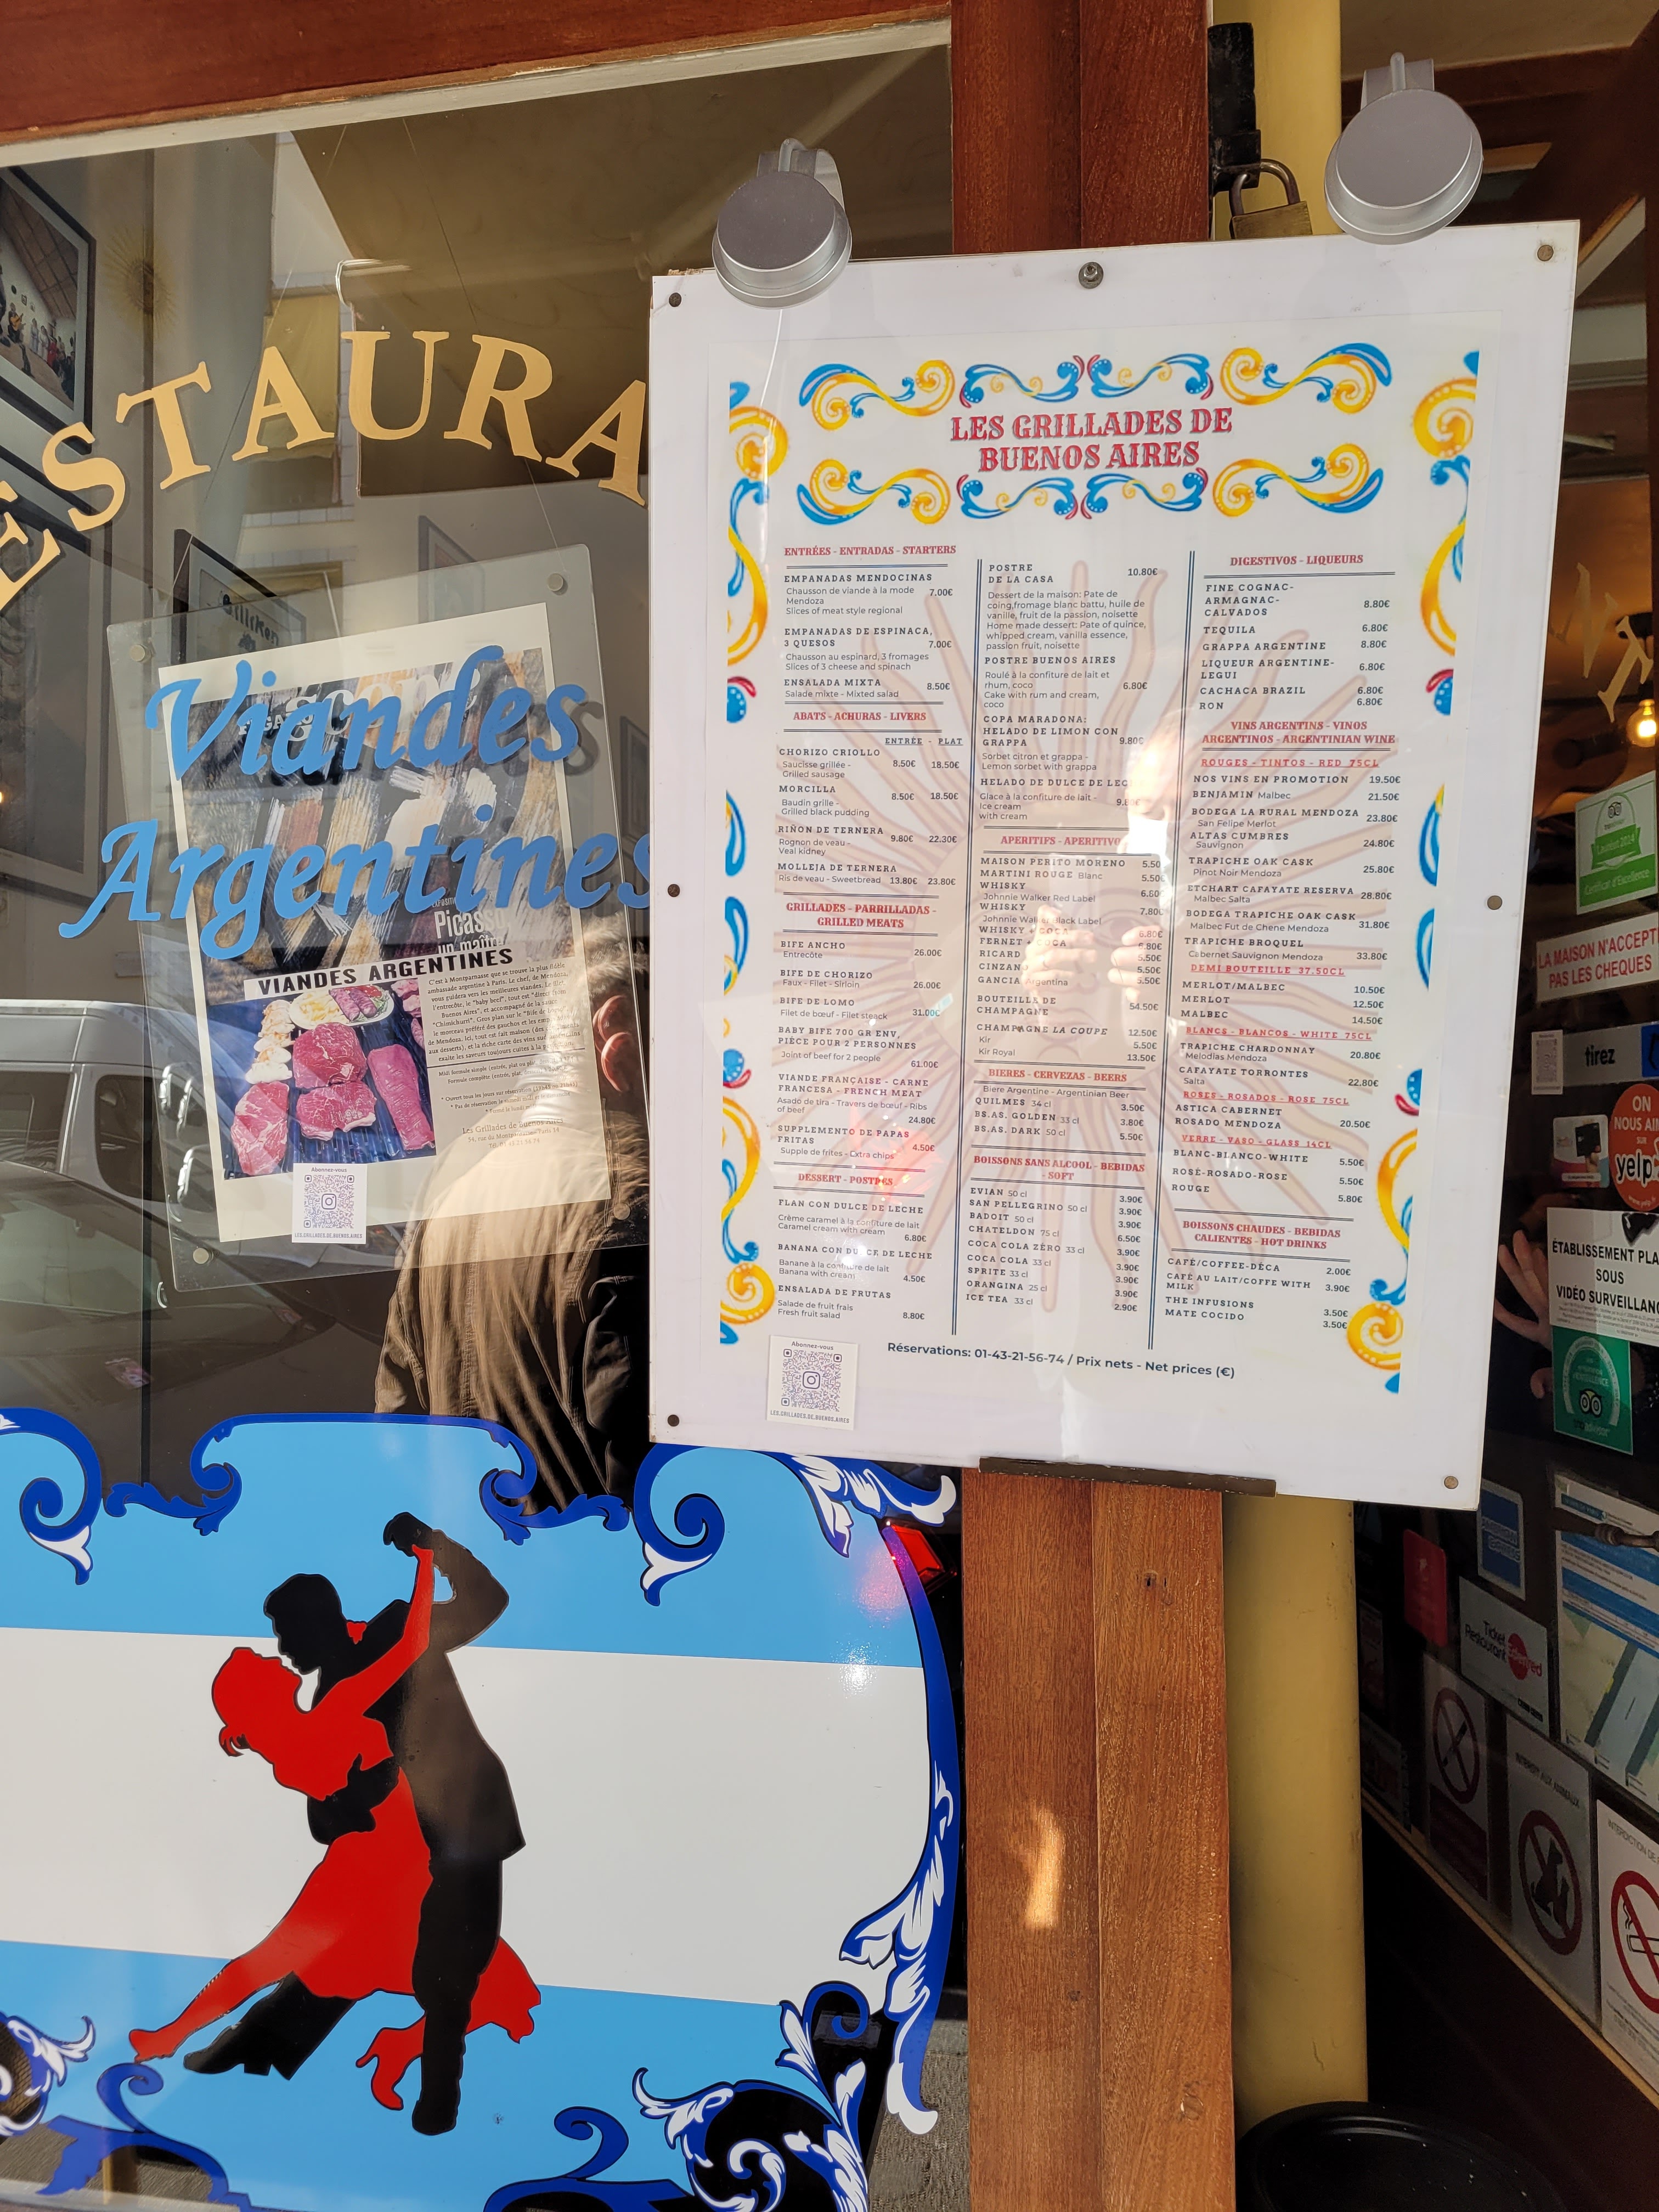 ESTAURA
Viandes
Argentines
Picasso
VIANDES ARGENTINES
Abonnez-vous
LES.GRILLADES.DE.BUENOS.AIRES
LES GRILLADES DE
BUENOS AIRES
ENTRÉES - ENTRADAS - STARTERS
EMPANADAS MENDOCINAS
Chausson de viande à la mode 7.00€
Mendoza
Slices of meat style regional
EMPANADAS DE ESPINACA,
3 QUESOS 7.00€
Chausson au espinard, 3 fromages
Slices of 3 cheese and spinach
ENSALADA MIXTA 8.50€
Salade mixte - Mixted salad
ABATS - ACHURAS - LIVERS
ENTRÉE - PLAT
CHORIZO CRIOLLO
Saucisse grillée - 8.50€ 18.50€
Grilled sausage
MORCILLA
Baudin grille - 8.50€ 18.50€
Grilled black pudding
RIÑON DE TERNERA
Rognon de veau - 9.80€ 22.30€
Veal kidney
MOLLEJA DE TERNERA
Ris de veau - Sweetbread 13.80€ 23.80€
GRILLADES - PARRILLADAS -
GRILLED MEATS
BIFE ANCHO
Entrecôte 26.00€
BIFE DE CHORIZO
Faux - Filet - Sirloin 26.00€
BIFE DE LOMO
Filet de bœuf - Filet steack 31.00€
BABY BIFE 700 GR ENV,
PIÈCE POUR 2 PERSONNES
Joint of beef for 2 people
61.00€
VIANDE FRANÇAISE - CARNE
FRANCESA - FRENCH MEAT
Asado de tira - Travers de bœuf - Ribs
of beef
24.80€
SUPPLEMENTO DE PAPAS
FRITAS
4.50€
Supple de frites - Extra chips
DESSERT - POSTRES
FLAN CON DULCE DE LECHE
Crème caramel à la confiture de lait
Caramel cream with cream
6.80€
BANANA CON DULCE DE LECHE
Banane à la confiture de lait
Banana with cream 4.50€
ENSALADA DE FRUTAS
Salade de fruit frais
Fresh fruit salad 8.80€
POSTRE
DE LA CASA 10.80€
Dessert de la maison: Pate de
coing,fromage blanc battu, huile de
vanille, fruit de la passion, noisette
Home made dessert: Pate of quince,
whipped cream, vanilla essence,
passion fruit, noisette
POSTRE BUENOS AIRES
Roulé à la confiture de lait et
rhum, coco 6.80€
Cake with rum and cream,
coco
COPA MARADONA:
HELADO DE LIMON CON
GRAPPA 9.80€
Sorbet citron et grappa -
Lemon sorbet with grappa
HELADO DE DULCE DE LEC
Glace à la confiture de lait -
Ice cream
with cream
APERITIFS - APERITIVO
MAISON PERITO MORENO 5.50
MARTINI ROUGE Blanc 5.50€
WHISKY
Johnnie Walker Red Label 6.60€
WHISKY
Johnnie Walker Black Label 7.80€
WHISKY + COCA 6.80€
FERNET + COCA 6.80€
RICARD 5.50€
CINZANO 5.50€
GANCIA Argentina 5.50€
BOUTEILLA DE
CHAMPAGNE 54.50€
CHAMPAGNE LA COUPE 12.50€
Kir 5.50€
Kir Royal 13.50€
BIERES - CERVEZAS - BEERS
Biere Argentine - Argentinian Beer
QUILMES 34 cl 3.50€
BS.AS. GOLDEN 33 cl 3.80€
BS.AS. DARK 50 cl 5.50€
BOISSONS SANS ALCOOL - BEBIDAS
- SOFT
EVIAN 50 cl 3.90€
SAN PELLEGRINO 50 cl 3.90€
BADOIT 50 cl 3.90€
CHATELDON 75 cl 6.50€
COCA COLA ZÉRO 33 cl 3.90€
COCA COLA 33 cl 3.90€
SPRITE 33 cl 3.90€
ORANGINA 25 cl 3.90€
ICE TEA 33 cl 2.90€
DIGESTIVOS - LIQUEURS
FINE COGNAC-
ARMAGNAC-
CALVADOS 8.80€
TEQUILA 6.80€
GRAPPA ARGENTINE 8.80€
LIQUEUR ARGENTINE-
LEGUI 6.80€
CACHACA BRAZIL 6.80€
RON 6.80€
VINS ARGENTINS - VINOS
ARGENTINOS - ARGENTINIAN WINE
ROUGES - TINTOS - RED 75CL
NOS VINS EN PROMOTION 19.50€
BENJAMIN Malbec 21.50€
BODEGA LA RURAL MENDOZA
San Felipe Merlot 23.80€
ALTAS CUMBRES
Sauvignon 24.80€
TRAPICHE OAK CASK
Pinot Noir Mendoza 25.80€
ETCHART CAFAYATE RESERVA
Malbec Salta 28.80€
BODEGA TRAPICHE OAK CASK
Malbec Fut de Chene Mendoza 31.80€
TRAPICHE BROQUEL
Cabernet Sauvignon Mendoza 33.80€
DEMI BOUTEILLE 37.50CL
MERLOT/MALBEC 10.50€
MERLOT 12.50€
MALBEC 14.50€
BLANCS - BLANCOS - WHITE 75CL
TRAPICHE CHARDONNAY
Melodias Mendoza 20.80€
CAFAYATE TORRONTES
Salta 22.80€
ROSES - ROSADOS - ROSE 75CL
ASTICA CABERNET
ROSADO MENDOZA 20.50€
VERRE - VASO - GLASS 14CL
BLANC-BLANCO-WHITE 5.50€
ROSÉ-ROSADO-ROSE 5.50€
ROUGE 5.80€
BOISSONS CHAUDES - BEBIDAS
CALIENTES - HOT DRINKS
CAFÉ/COFFEE-DÉCA 2.00€
CAFÉ AU LAIT/COFFE WITH
MILK 3.90€
THE INFUSIONS 3.50€
MATE COCIDO 3.50€
Réservations: 01-43-21-56-74 / Prix nets - Net prices (€)
Abonnez-vous
LES.GRILLADES.DE.BUENOS.AIRES
LA MAISON N'ACCEPT
PAS LES CHEQUES
tirez
ON
NOUS AI
SUR
yelp
ÉTABLISSEMENT PLA
SOUS
VIDÉO SURVEILLANC
Ticket
Restaurant